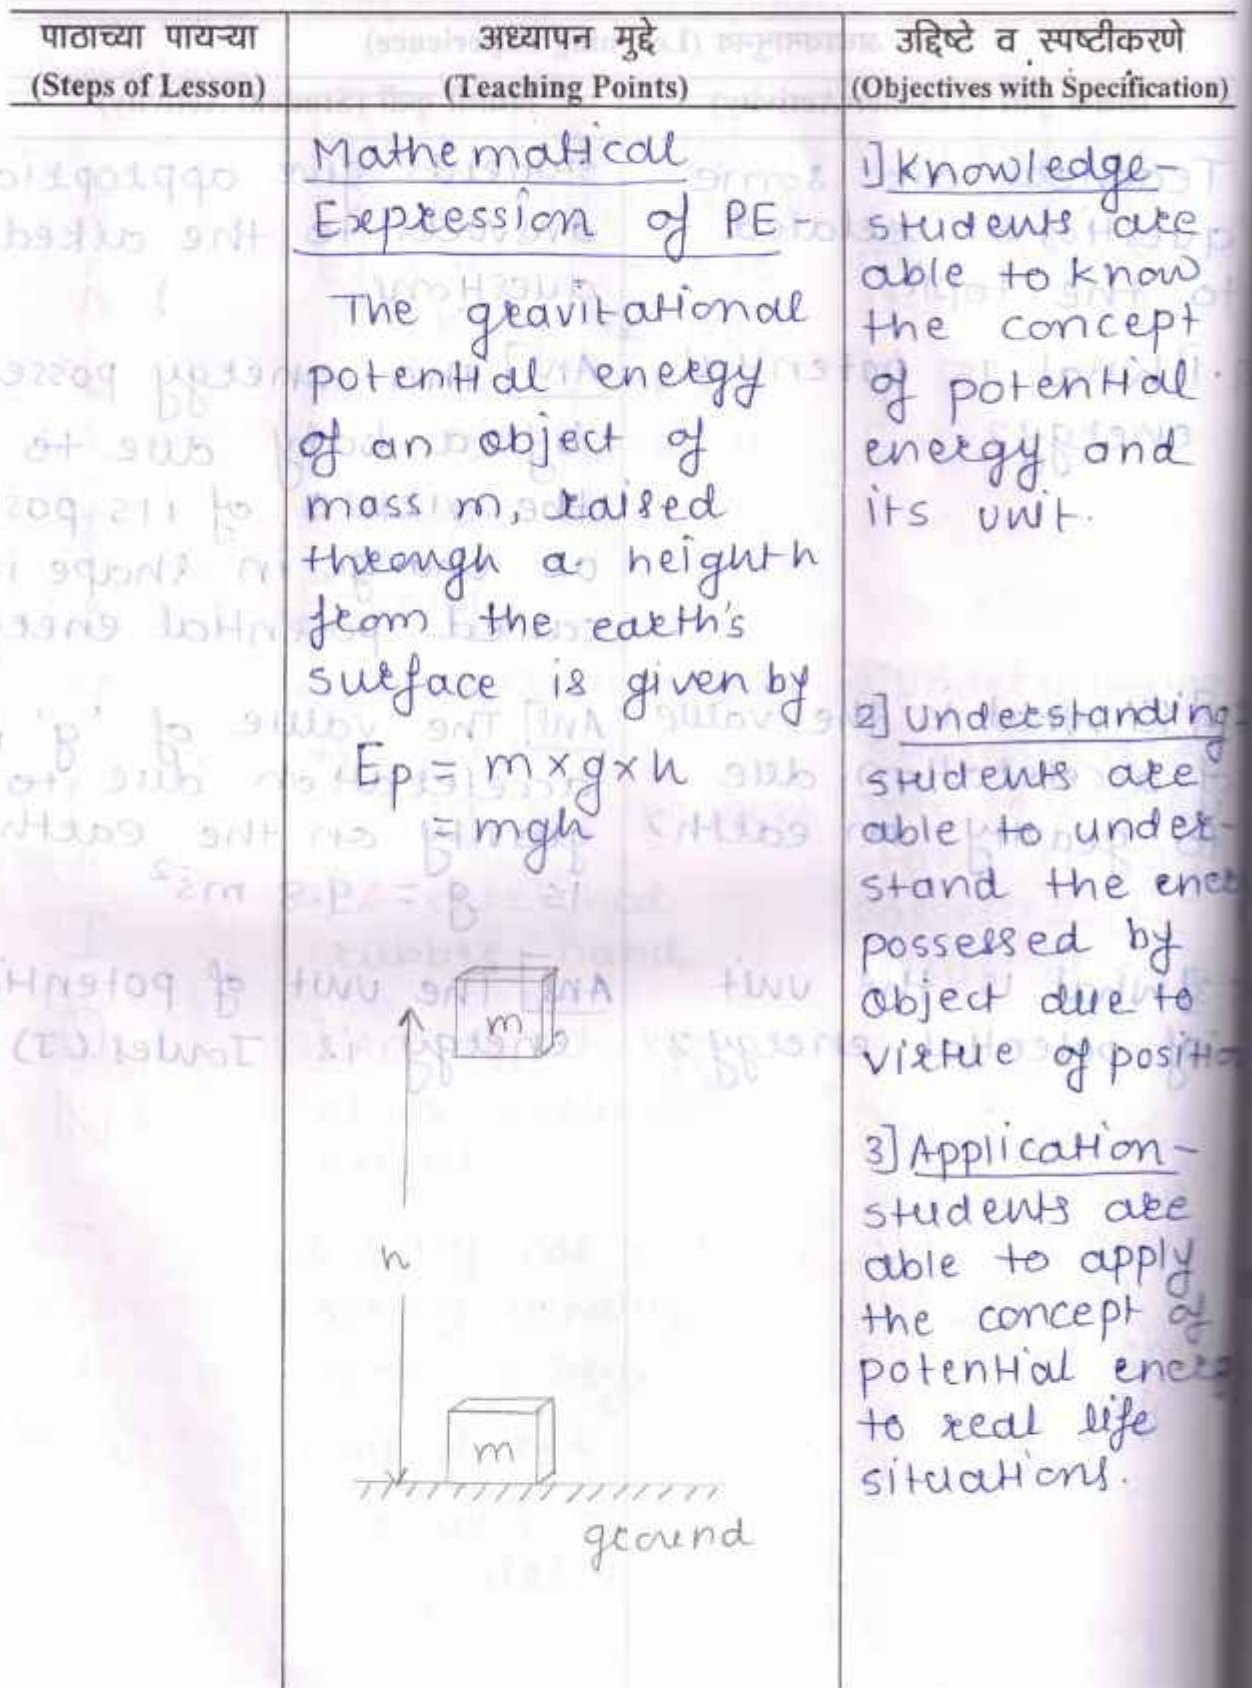 पाठाच्या पायऱ्या
(Steps of Lesson)
अध्यापन मुद्दे
(Teaching Points)
उद्दिष्टे व स्पष्टीकरणे
(Objectives with Specification)
Mathematical
Expression of PE -
The gravitational
potential energy
of an object of
mass m, raised
through a height h
from the earth's
surface is given by
Ep = m×g×h
= mgh
m
h
m
ground
1] Knowledge-
students are
able to know
the concept
of potential
energy and
its unit.
2] Understanding-
students are
able to under-
stand the
possessed by
object due to
virtue of
3] Application-
students are
able to apply
the concept of
potential
to real life
situations.